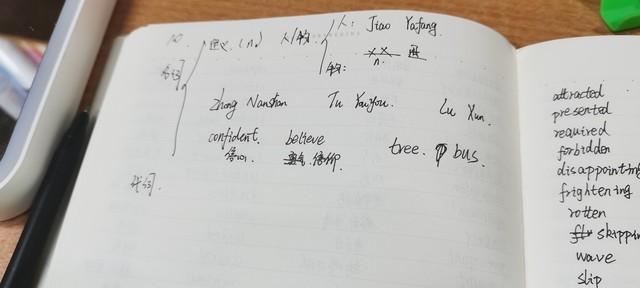 n.
名词
定义.(n.) 人/物 人: Jiao Yafang.
n.
物:
Zhong Nanshan Tu YouYou. Lu Xun.
confident. believe tree. bus.
信仰.
代词.
attracted
presented
required
forbidden
disappointing
frightening
rotten
skippin
wave
slip